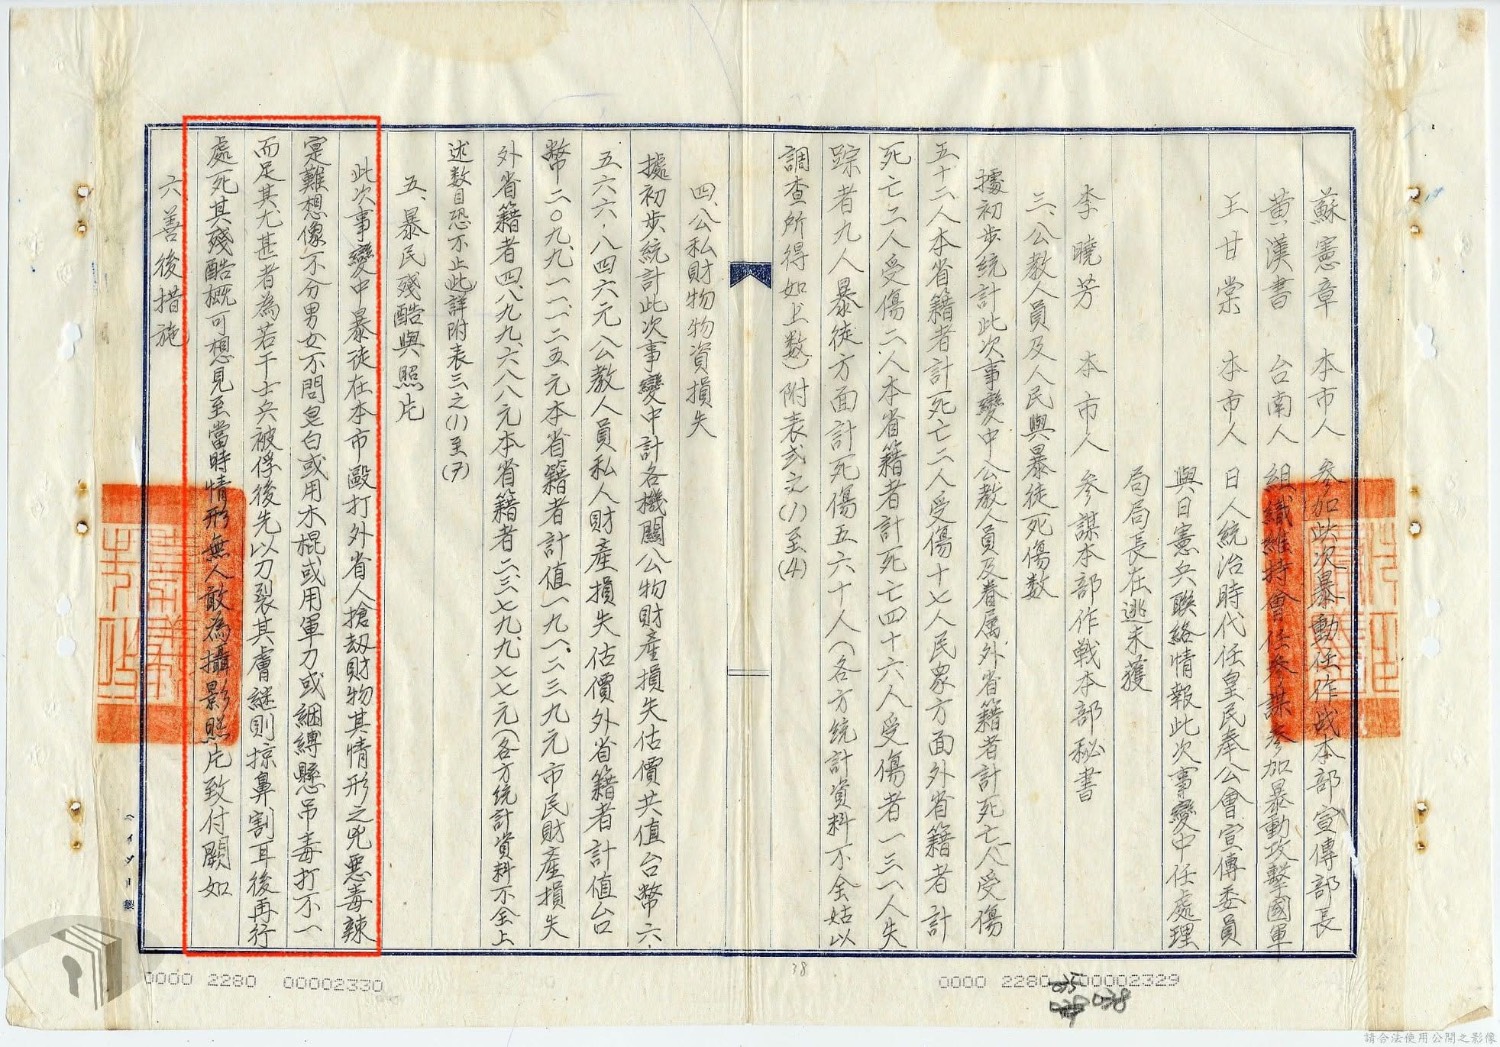 蘇憲章　本市人　參加此次暴動任作战本部宣傳部長
黄漢書　台南人　組織維持會任參謀參加暴動攻擊國軍
王甘棠　本市人　日人統治時代任皇民奉公會宣傳委員
與日憲兵聯絡情報此次事變中任處理
局局長在逃未獲
李曉芳　本市人　參謀本部作戰本部秘書
三、公教人員及人民與暴徒死傷数
據初步統計此次事變中公教人員及眷属外省籍者計死亡八受傷
五十二人本省籍者計死亡二人受傷十七人民眾方面外省籍者計
死亡二人受傷二人本省籍者計死亡四十六人受傷者一三一人失
踪者九人暴徒方面計死傷五六十人（各方統計資料不全姑以
調查所得如上数）附表弍之(1)至(4)
四、公私財物物資損失
據初步統計此次事變中計各機關公物財產損失估價共值台幣六、
五六六、八四六元公教人員私人財產損失估價外省籍者計值台
幣二〇九、九一一、一二五元本省籍者計值一九八、二三九元市民財產損失
外省籍者四、八九九、六八八元本省籍者二、三七九、九七七元（各方統計資料不全上
述数目恐不止此）詳附表三之(1)至(7)
五、暴民殘酷與照片
此次事變中暴徒在本市毆打外省人搶刼財物其情形之兇惡毒辣
寔難想像不分男女不問皂白或用木棍或用軍刀或綑縛懸吊毒打不一
而足其尤甚者為若干士兵被俘後先以刀裂其膚継則掠鼻割耳後再行
處死其殘酷概可想見至當時情形無人敢為攝影照片致付闕如
六、善後措施
0000 2280 00002330
38
0000 2280 00002329
038
請合法使用公開之影像